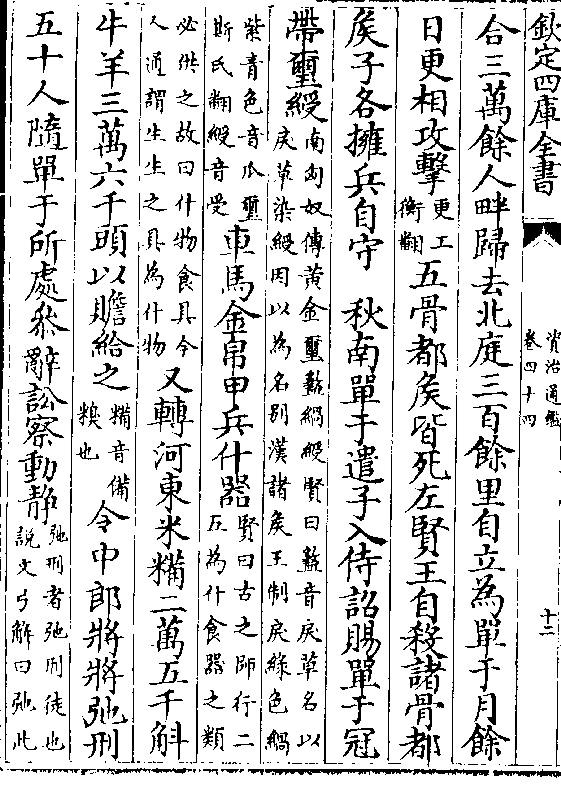 欽定四庫全書
資治通鑑
卷四十四
十二
合三萬餘人畔歸去北庭三百餘里自立為單于月餘
日更相攻擊更工衡翻五骨都矦皆死左賢王自殺諸骨都
矦子各擁兵自守　秋南單于遣子入侍詔賜單于冠
帶璽綬南匈奴傳黄金璽盭緺綬賢曰盭音戾草名以戾草染綬因以為名别漢諸矦王制戾綠色緺
紫青色音瓜璽斯氏翻綬音受車馬金帛甲兵什器賢曰古之師行二五為什食器之類
必供之故曰什物食具今人通謂生生之具為什物又轉河東米糒二萬五千斛
牛羊三萬六千頭以贍給之糒音備糗也令中郎將將弛刑
五十人隨單于所處叅辭訟察動静弛刑者弛刑徒也説文弓解曰弛此